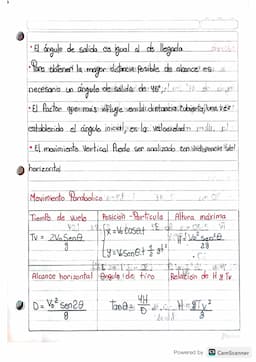 • El ángulo de salida es igual al de llegada
• Para obtener la mayor distancia posible de alcance es
necesario un ángulo de salida de 45°
• El factor que más influye en la distancia cubierta, una vez
establecido el ángulo inicial, es la velocidad
• El movimiento vertical Puede ser analizado con
horizontal
Movimiento Parabolico
Tiempo de vuelo Posición - Partícula Altura máxima
Tv = 2V₀Senθ / g
x = V₀Cosθt
y = V₀Senθt
H = V₀²Sen²θ / 2g
Alcance horizontal Angulo de tiro Relación de H y Tv
D = V₀²Sen2θ / g
Tanθ = 4H / D
H = gTv² / 8
Powered by CS CamScanner